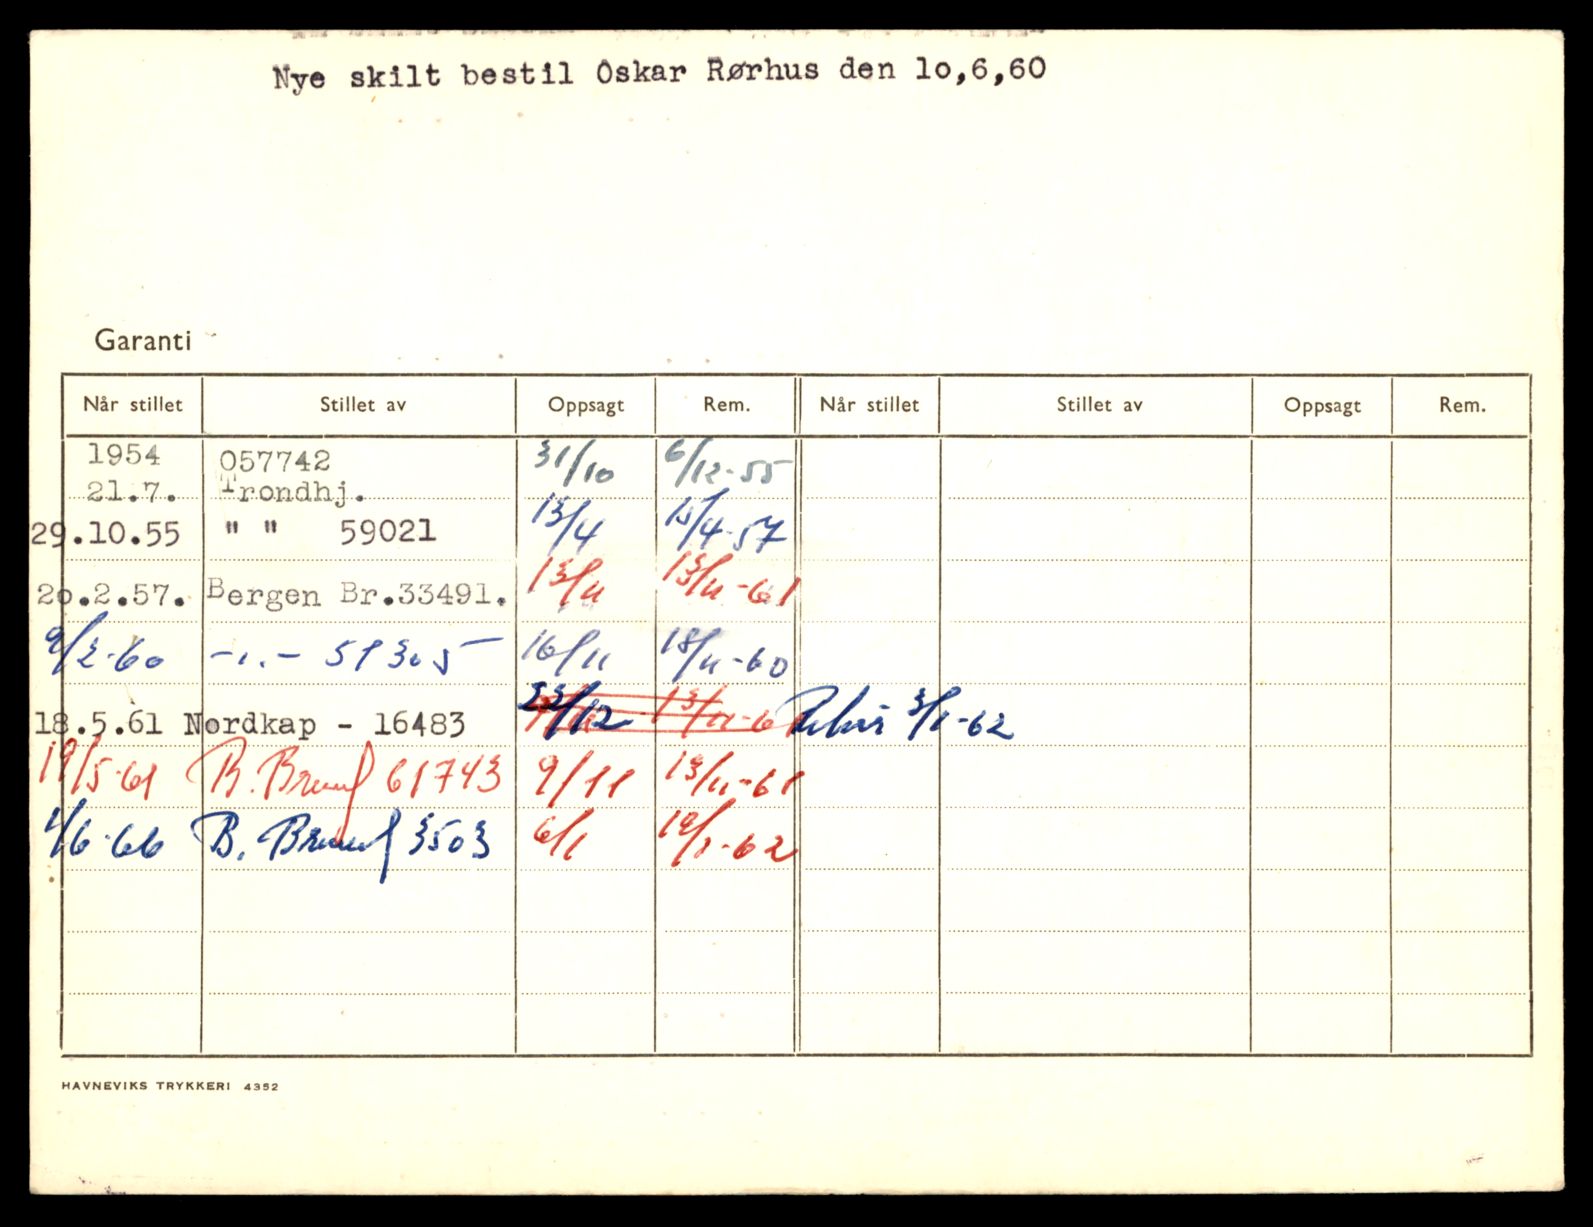 Nye skilt bestil Oskar Rørhus den 1o,6,60
Garanti
Når stillet Stillet av Oppsagt Rem. Når stillet Stillet av Oppsagt Rem.
1954 057742 31/10 6/12-55
21.7. Trondhj.
29.10.55 " " 59021 13/4 15/4-57
2o.2.57. Bergen Br.33491. 13/11 13/11-61
9/2-60 -"- 51305 16/11 18/11-60
18.5.61 Nordkap - 16483 /12 13/11-61 3/1-62
19/5-61 B. Brand 61743 9/11 13/11-61
1/6-66 B. Brand 3503 6/1 19/1-62
HAVNEVIKS TRYKKERI 4352